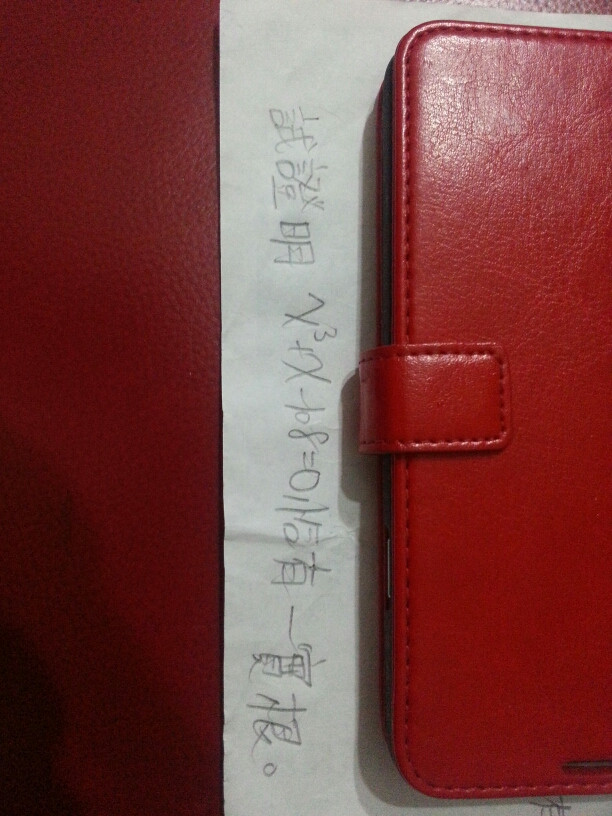 試證明 x³+x-108=0恰有一實根。